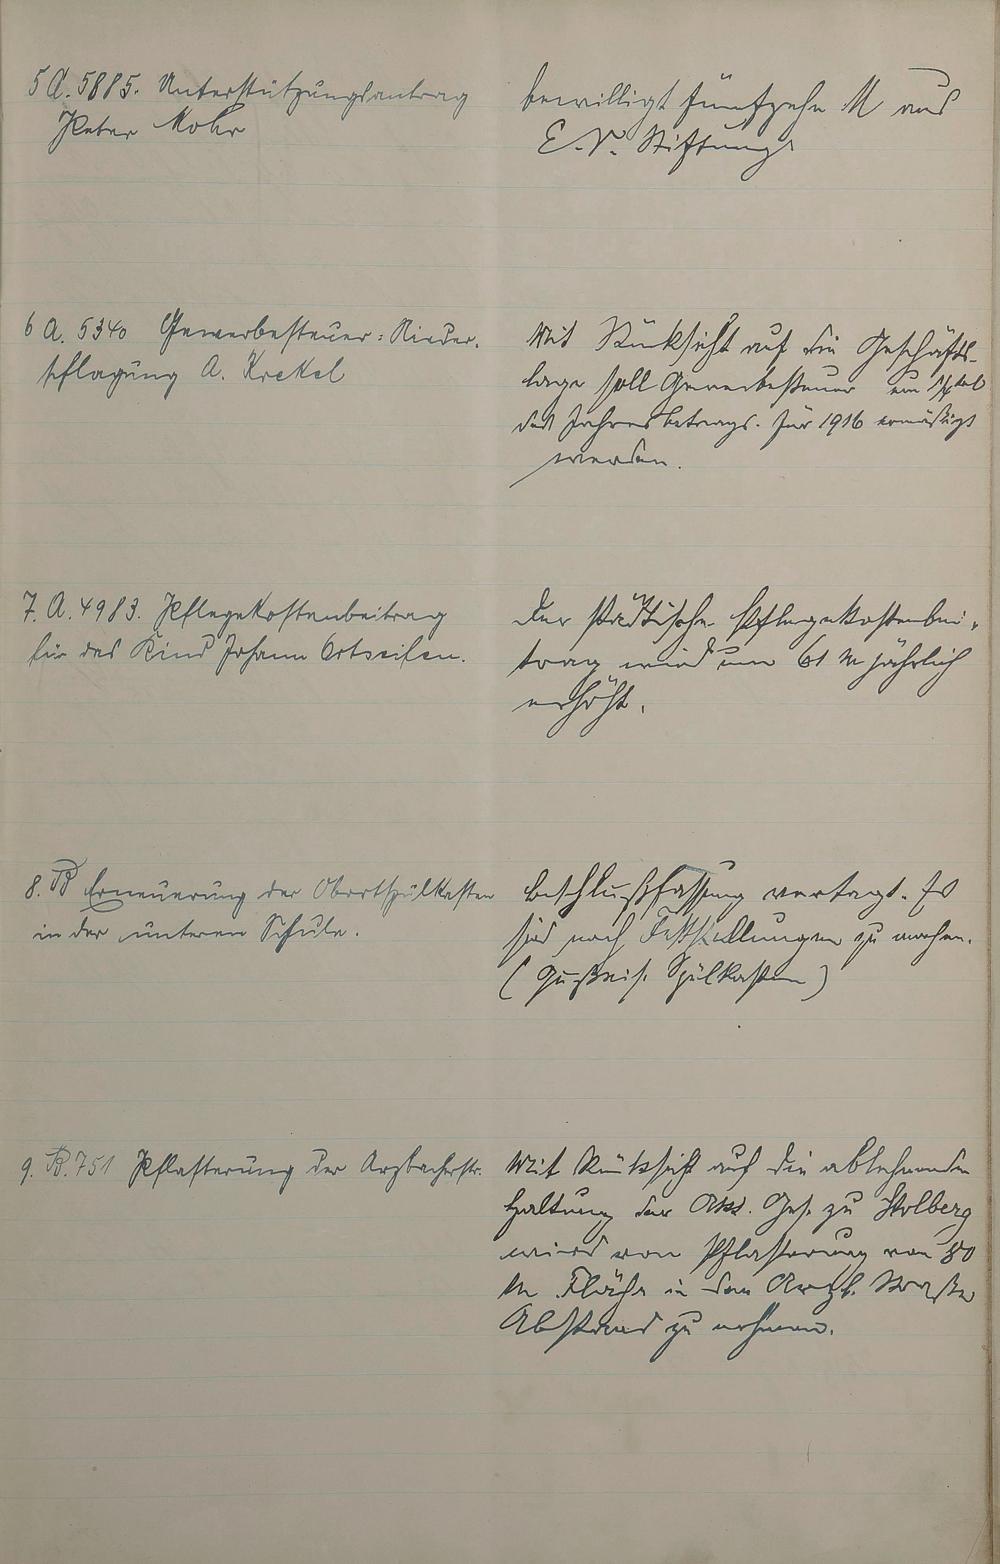 5 A. 5885. Unterstützungsantrag
Peter Mohr
bewilligt fünfzehn M aus
E. V. Stiftung
6 A. 5340 Gewerbesteuer: Nieder-
schlagung A. Krekel
Mit Rücksicht auf die Geschäfts-
lage soll Gewerbesteuer um
des Jahresbetrags für 1916 ermäßigt
werden.
7. A. 4983. Pflegekostenbeitrag
für das Kind Johann Ortseifen.
Der städtische Pflegekostenbei-
trag wird um 61 M jährlich
erhöht.
8. B Erneuerung der Abortspülkasten
in der unteren Schule.
Beschlußfassung vertagt. Es
sind noch Feststellungen zu machen.
(Gußeis. Spülkasten)
9. B. 751 Pflasterung der Arzbacherstr.
Mit Rücksicht auf die ablehnende
Haltung der Akt. Ges. zu Stolberg
wird von Pflasterung von
m Fläche in der Arzb. Straße
Abstand zu nehmen.